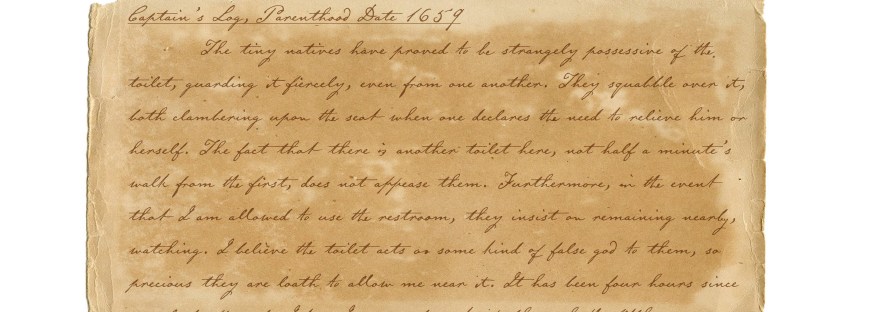 Captain's Log, Parenthood Date 1659
The tiny natives have proved to be strangely possessive of the
toilet, guarding it fiercely, even from one another. They squabble over it,
both clambering upon the seat when one declares the need to relieve him or
herself. The fact that there is another toilet here, not half a minute's
walk from the first, does not appease them. Furthermore, in the event
that I am allowed to use the restroom, they insist on remaining nearby,
watching. I believe the toilet acts as some kind of false god to them, so
precious they are loath to allow me near it. It has been four hours since